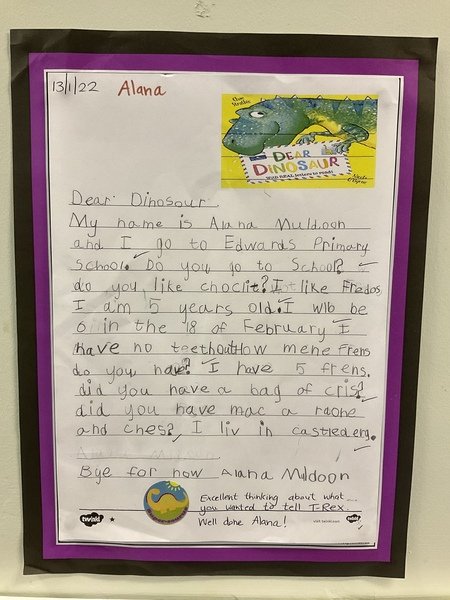 13/1/22 Alana
DEAR
DINOSAUR
With REAL letters to read!
Dear Dinosour
My name is Alana Muldoon
and I go to Edwards Primary
School. Do you go to School?
do you like choclit? I like Fredos
I am 5 years old. I wlb be
6 in the 18 of February I
have no teeth out How mene Frens
do you have? I have 5 frens.
did you have a bag of cris?
did you have mac a rone
and ches? I liv in castlederg.
Bye for now Alana Muldoon
Excellent thinking about what
you wanted to tell T-Rex.
Well done Alana!
twinkl
visit twinkl.com
twinkl